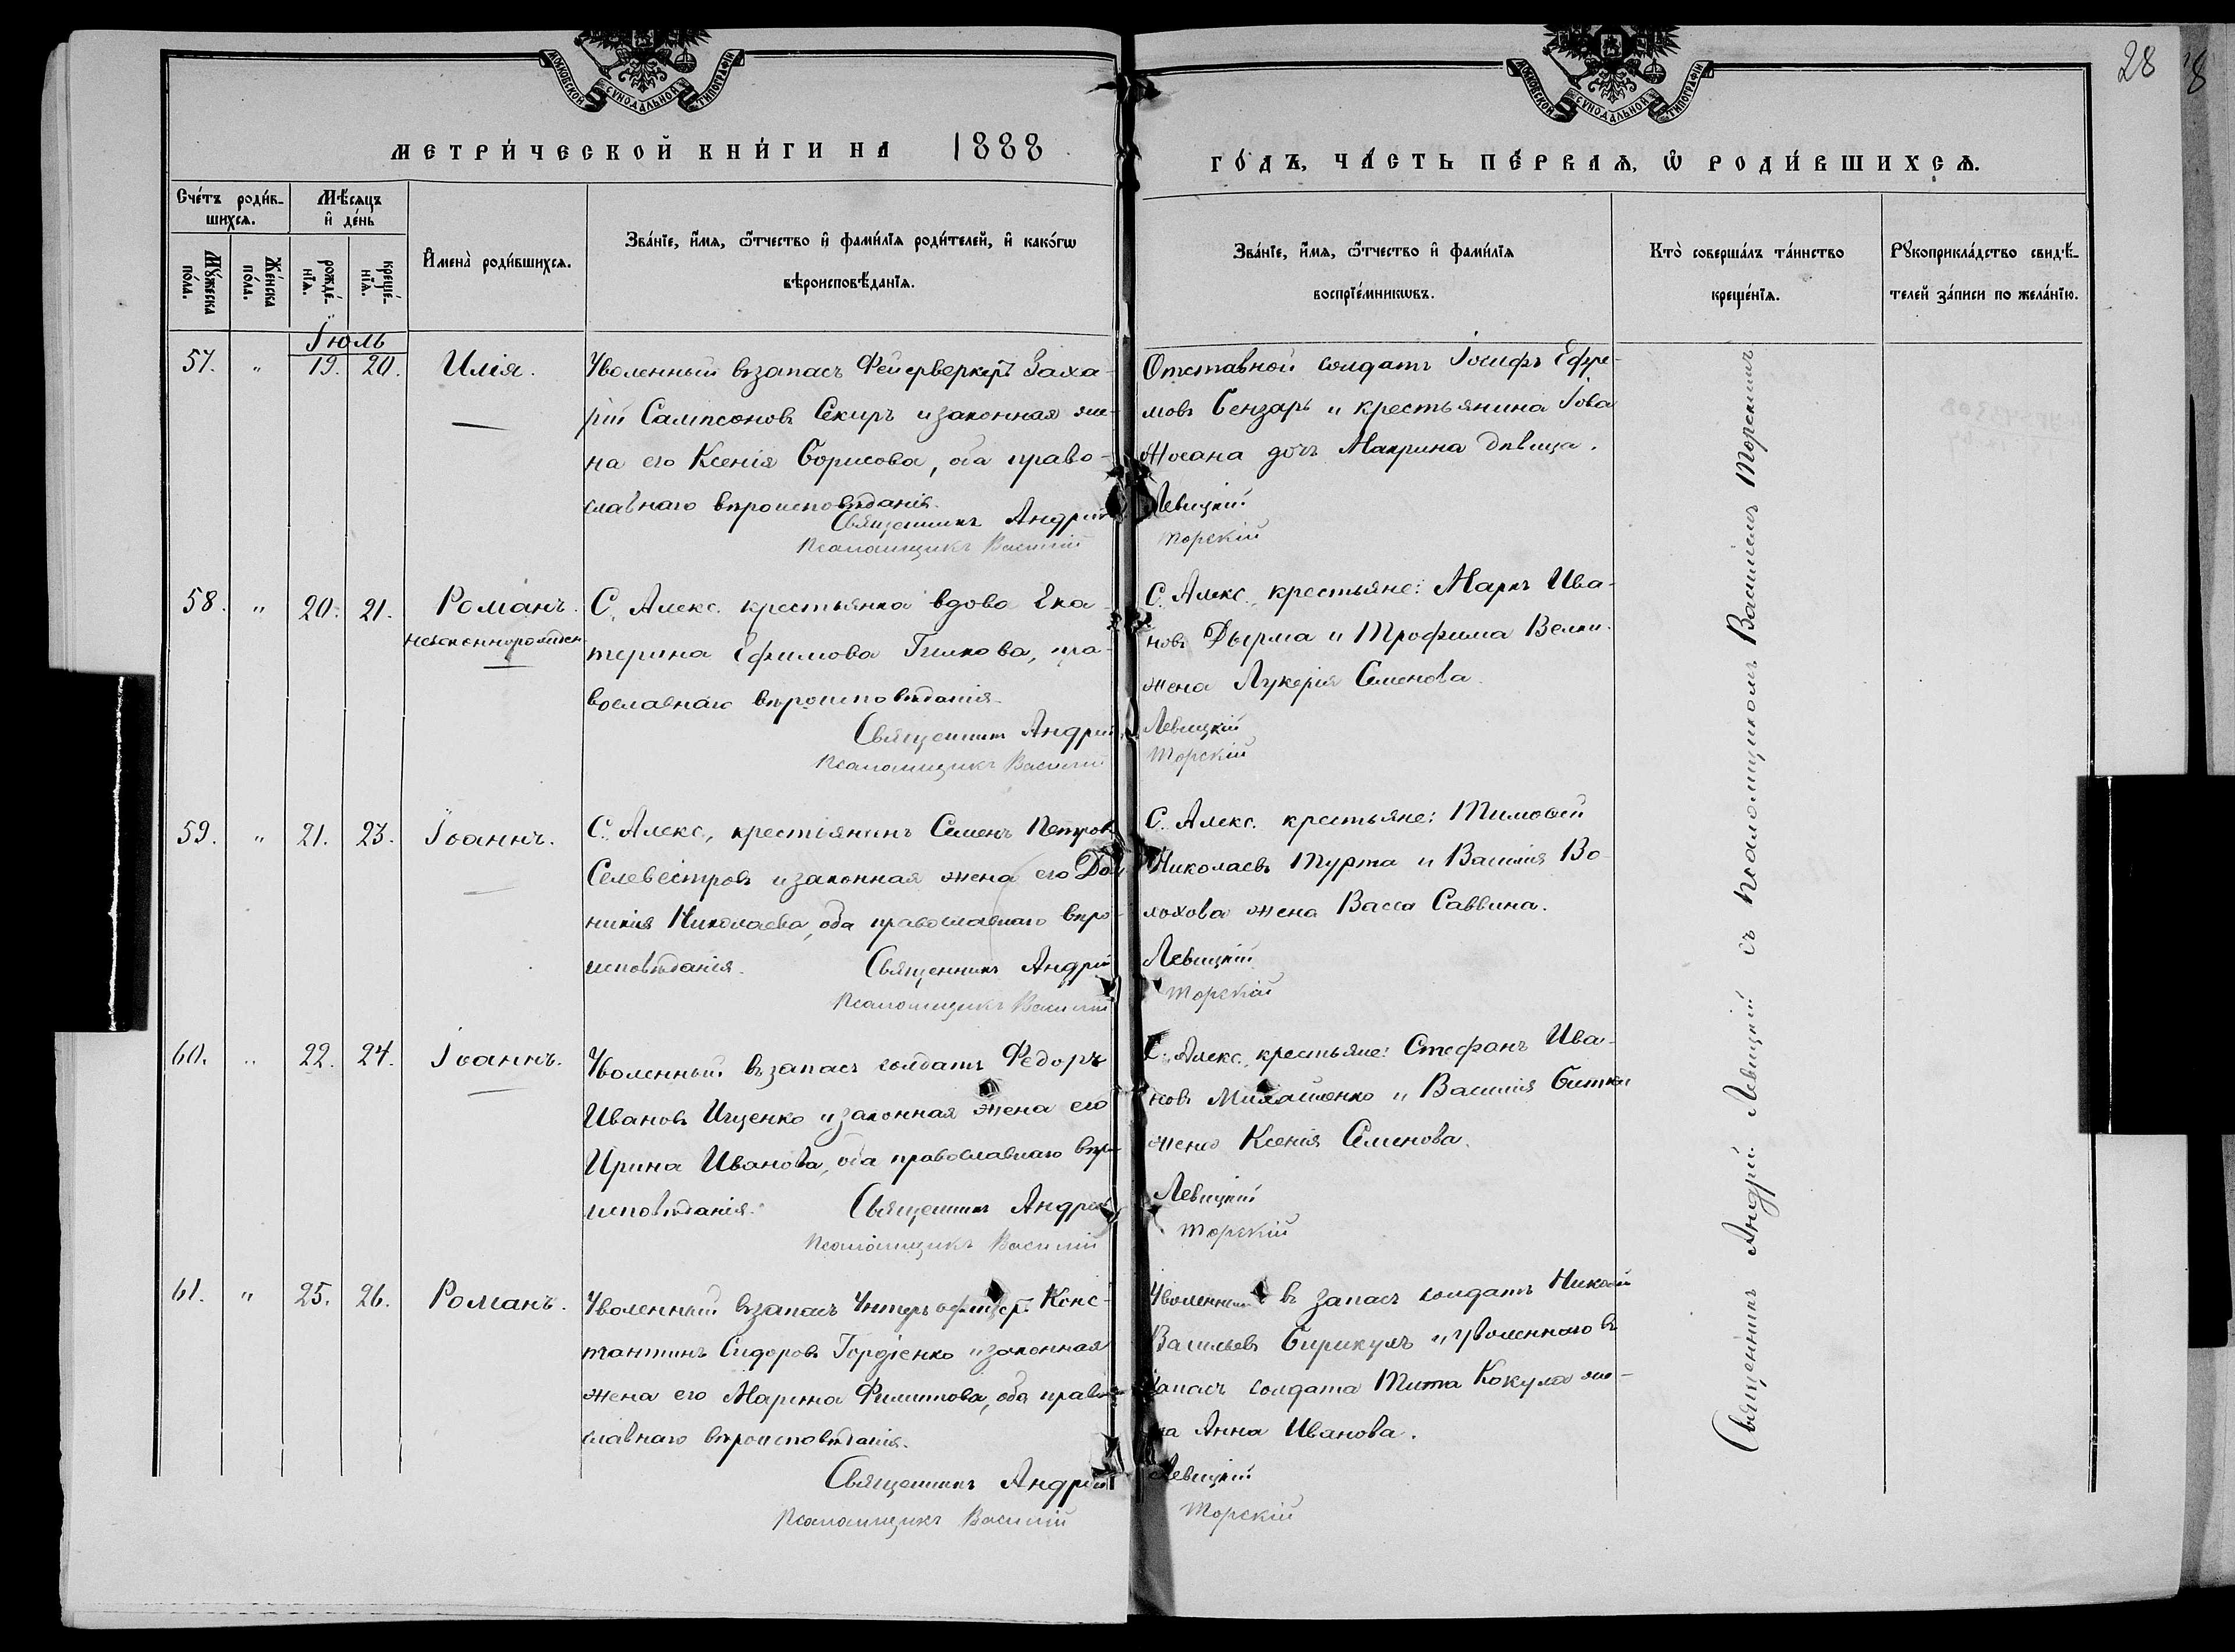 28
МОСКОВСКОЙ СѴНОДАЛЬНОЙ ТИПОГРАФІИ
МОСКОВСКОЙ СѴНОДАЛЬНОЙ ТИПОГРАФІИ
МЕТРИ́ЧЕСКОЙ КНИ́ГИ НА 1888
ГО́ДЪ, ЧА́СТЬ ПЕ́РВАѦ, Ѽ РОДИ́ВШИХСѦ.
Сче́тъ роди́в-
шихсѧ.
Мꙋ́жеска по́ла.
Же́нска по́ла.
Мѣ́сѧцъ
и҆ де́нь
рожде́-
нїѧ.
креще́-
нїѧ.
И҆мена̀ роди́вшихсѧ.
Зва́нїе, и҆́мѧ, ѻ҆́тчество и҆ фами́лїѧ роди́телей, и҆ како́гѡ
вѣроисповѣ́данїѧ.
Зва́нїе, и҆́мѧ, ѻ҆́тчество и҆ фами́лїѧ
воспрїе́мникѡвъ.
Кто̀ соверша́лъ та́инство
креще́нїѧ.
Рꙋкоприкла́дство свидѣ́-
телей за́писи по жела́нїю.
Іюль
57. " 19. 20. Илія.
Уволенный въ запасъ Фейерверкеръ Заха-
рій Сампсоновъ Секиръ и законная же-
на его Ксенія Борисова, оба право-
славнаго вѣроисповѣданія.
Священникъ Андрей
Псаломщикъ Василій
Отставной солдатъ Іосифъ Ефре-
мовъ Бензарь и крестьянина Іова
Жосана дочь Макрина дѣвица.
Левицкій
Торскій
58. " 20. 21. Романъ.
незаконнорожден.
С. Алекс. крестьянка вдова Ека-
терина Ефимова Гилкова, пра-
вославнаго вѣроисповѣданія.
Священникъ Андрей
Псаломщикъ Василій
С. Алекс. крестьяне: Маркъ Ива-
новъ Дырма и Трофима Велик.
жена Лукерія Семенова.
Левицкій
Торскій
59. " 21. 23. Іоаннъ.
С. Алекс. крестьянинъ Семенъ Петровъ
Селевестровъ и законная жена его Дом
никія Николаева, оба православнаго вѣро-
исповѣданія. Священникъ Андрей
Псаломщикъ Василій
С. Алекс. крестьяне: Тимоѳей
Николаевъ Турта и Василія Во-
лохова жена Васса Саввина.
Левицкій
Торскій
60. " 22. 24. Іоаннъ.
Уволенный въ запасъ солдатъ Федоръ
Ивановъ Ищенко и законная жена его
Ирина Иванова, оба православнаго вѣро-
исповѣданія. Священникъ Андрей
Псаломщикъ Василій
С. Алекс. крестьяне: Стефанъ Ива-
новъ Михайленко и Василія Битки
жена Ксенія Семенова.
Левицкій
Торскій
61. " 25. 26. Романъ.
Уволенный въ запасъ Унтеръ офицеръ Конс-
тантинъ Сидоровъ Гордіенко и законная
жена его Марина Филиппова, оба право-
славнаго вѣроисповѣданія.
Священникъ Андрей
Псаломщикъ Василій
Уволенный въ запасъ солдатъ Николай
Васильевъ Бирикулъ и уволеннаго въ
запасъ солдата Тита Кокула же-
на Анна Иванова.
Левицкій
Торскій
Священникъ Андрей Левицкій съ псаломщикомъ Василіемъ Торскимъ